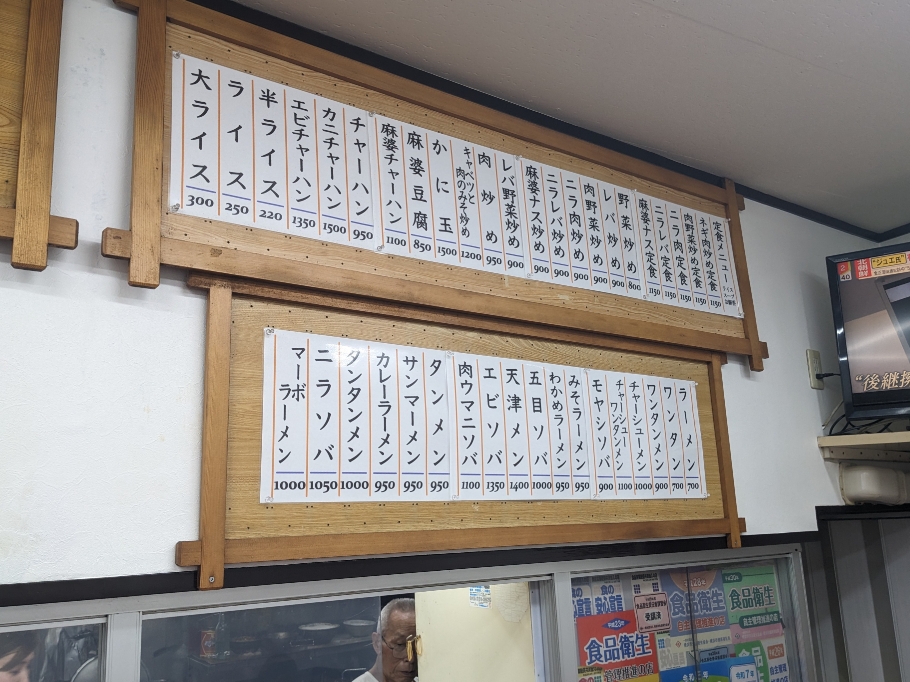 定食メニュー
ネギ肉炒め定食 1150
肉野菜炒め定食 1150
ニラ肉定食 1150
ニラレバ定食 1150
麻婆ナス定食 1150
野菜炒め 800
レバ炒め 900
肉野菜炒め 900
ニラ肉炒め 900
ニラレバ炒め 900
麻婆ナス炒め 900
レバ野菜炒め 900
肉炒め 950
キャベツと
肉のみそ炒め 1200
かに玉 1500
麻婆豆腐 850
麻婆チャーハン 1100
チャーハン 950
カニチャーハン 1500
エビチャーハン 1350
半ライス 220
ライス 250
大ライス 300
ラーメン 700
ワンタン 700
ワンタメン 900
チャーシューメン 1000
チャーシュー
ワンタメン 1100
モヤシソバ 900
みそラーメン 950
わかめラーメン 950
五目ソバ 1000
天津メン 1400
エビソバ 1350
肉ウマニソバ 1100
タンメン 950
サンマーメン 950
カレーラーメン 950
タンタンメン 1000
ニラソバ 1050
マーボ
ラーメン 1000
40
"後継
食品衛生
平成23年
食品衛生
食品衛生
令和7年